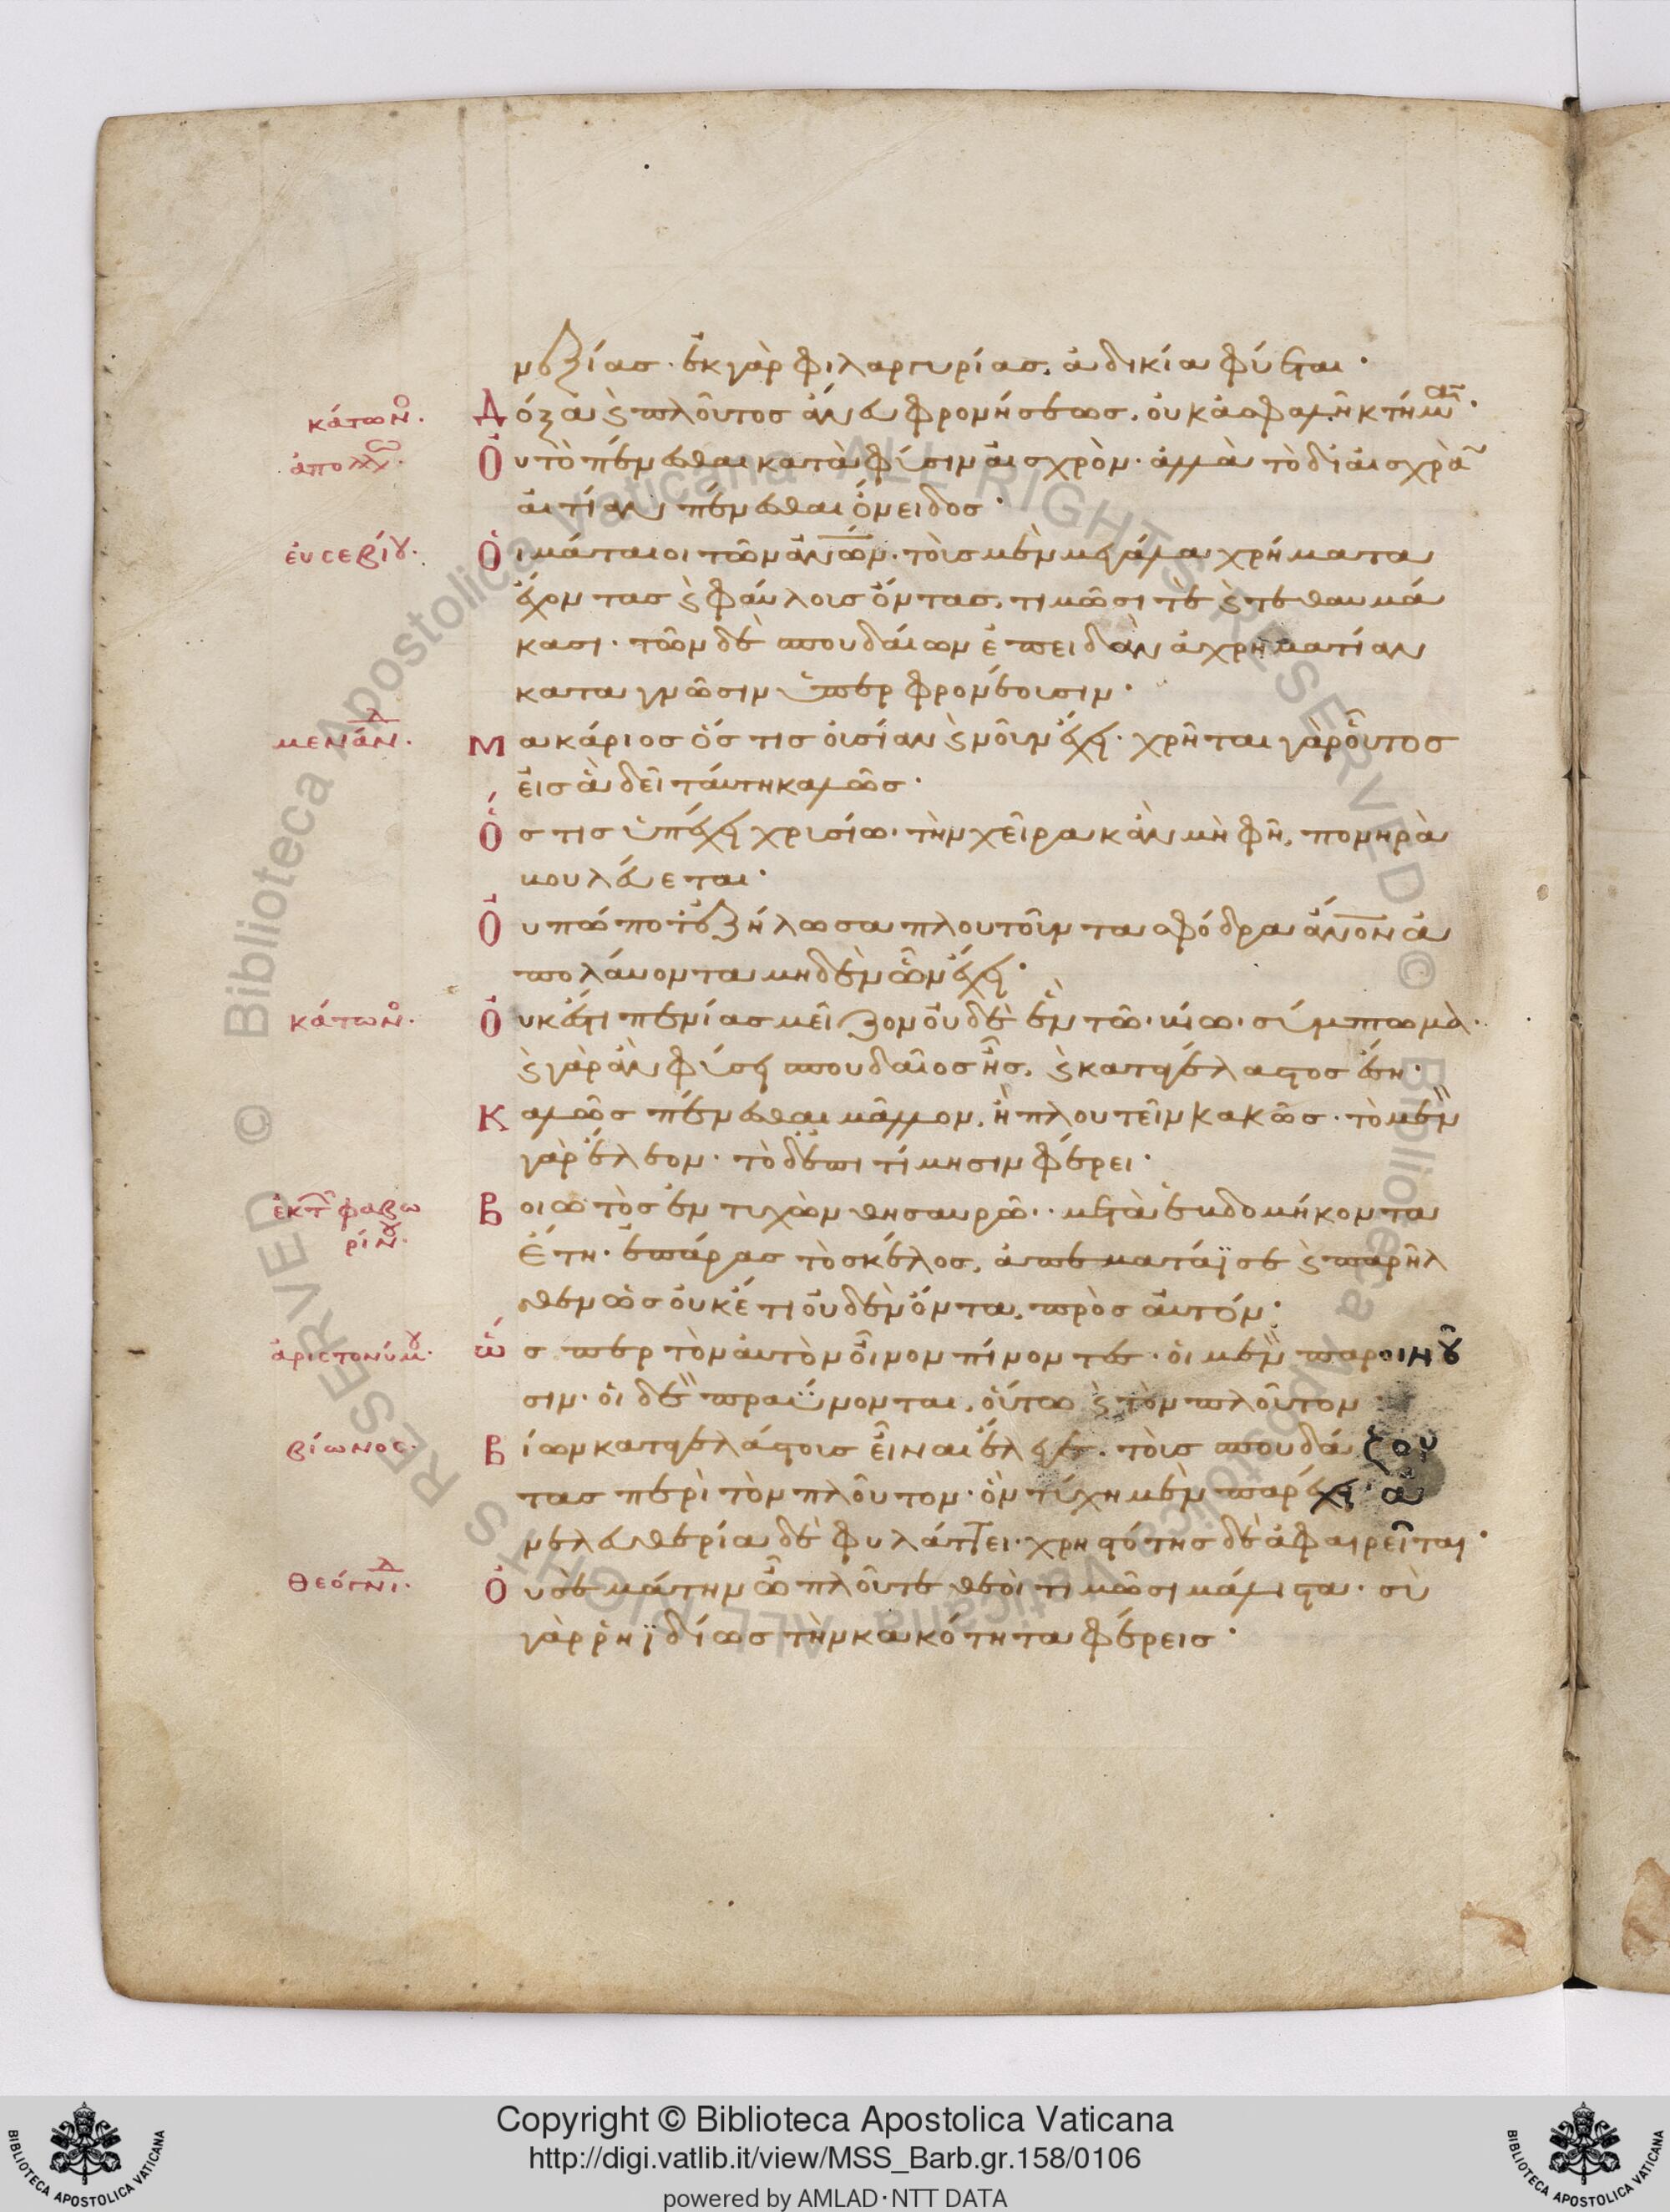 νεξίας· ἐκ γὰρ φιλαργυρίας, ἀδικία φύεται·
κάτων̊. Δόξα ϛ πλοῦτος ἄνευ φρονήσεως, οὐκ ἀσφαλῆ κτήμα̃τ·
ἀπολλω. Οὐ τὸ πένεσθαι κατὰ φύσιν αἰσχρὸν· ἀλλὰ τὸ δι' αἰσχρὰ̃
αἰτίαν πένεσθαι ὄνειδος·
ἐυσεβίȣ. Οἱ μάταιοι τῶν ἀν̅ω̅ν· τοὺς μὲν μεγάλα χρήματα
ἔχοντας ϛ φαύλους ὄντας, τιμῶσί τε ϛ τεθαυμά
κασι· τῶν δὲ σπουδαίων ἐπειδὰν ἀχρηματίαν
καταγνῶσιν ὑπερφρονέουσιν·
μενάν̅δ. Μακάριος ὅστις οὐσίαν ϛ νοῦν ἔχει· χρῆται γὰρ οὗτος
εἰς ἃ δεῖ ταύτη καλῶς·
Ὅστις ὑπέχει χρυσίω· τὴν χεῖρα κἂν μὴ φῆ, πονηρὰ
βουλεύεται·
Οὐπώποτ' ἐζήλωσα πλουτοῦντα σφόδρα ἄν̅ο̅ν ἀ
πολάυοντα μηδὲν ὧν ἔχει·
κάτων̊. Οὐκ ἔτι πενίας μεῖζον οὐδὲ ἓν τῶ βίω· σύμπτωμὰ·
ϛ γὰρ ἂν φύσει σπουδαῖος ῆς, ϛ καταγέλαστος ἔση·
Καλῶς πένεσθαι μᾶλλον, ἢ πλουτεῖν κακῶς· τὸ μὲν
γὰρ ἔλεον· τὸ δ' ἐπιτίμησιν φέρει·
ἐκ τῆ φαβω Βοιωτὸς ἐντυχὼν θησαυρῶ· μετὰ ἑβδομήκοντα
ρίνȣ. ἔτη· ἐπάρας τὸ σκέλος, ἀπεματάϊσε ϛ παρῆλ
θεν ὡς οὐκέτι οὐδὲν ὄντα, πρὸς αὐτόν·
ἀριστονύμȣ· Ὥσπερ τὸν ἀυτὸν οἶνον πίνοντες· οἱ μὲν παροινȣ̃
σιν· οἱ δὲ πραΰνονται, οὕτω ϛ τὸν πλοῦτον
βίωνος· Βίων καταγελάστους εἶναι ἔλεγε, τοὺς σπουδάζου
τας περὶ τὸν πλοῦτον· ὃν τύχη μὲν παρέχει· ἀ
νελευθερία δὲ φυλάττει· χρηστότης δὲ ἀφαιρεῖται·
θεόγνι̅δ. Οὔ σε μάτην ὦ πλοῦτε θεοὶ τιμῶσι μάλιστα· σὺ
γὰρ ῥηϊδίως τὴν κακότητα φέρεις·
© Biblioteca Apostolica Vaticana ALL RIGHTS RESERVED © Biblioteca Apostolica Vaticana ALL RIGHTS RESERVED
Copyright © Biblioteca Apostolica Vaticana
http://digi.vatlib.it/view/MSS_Barb.gr.158/0106
powered by AMLAD·NTT DATA
BIBLIOTECA APOSTOLICA VATICANA
BIBLIOTECA APOSTOLICA VATICANA